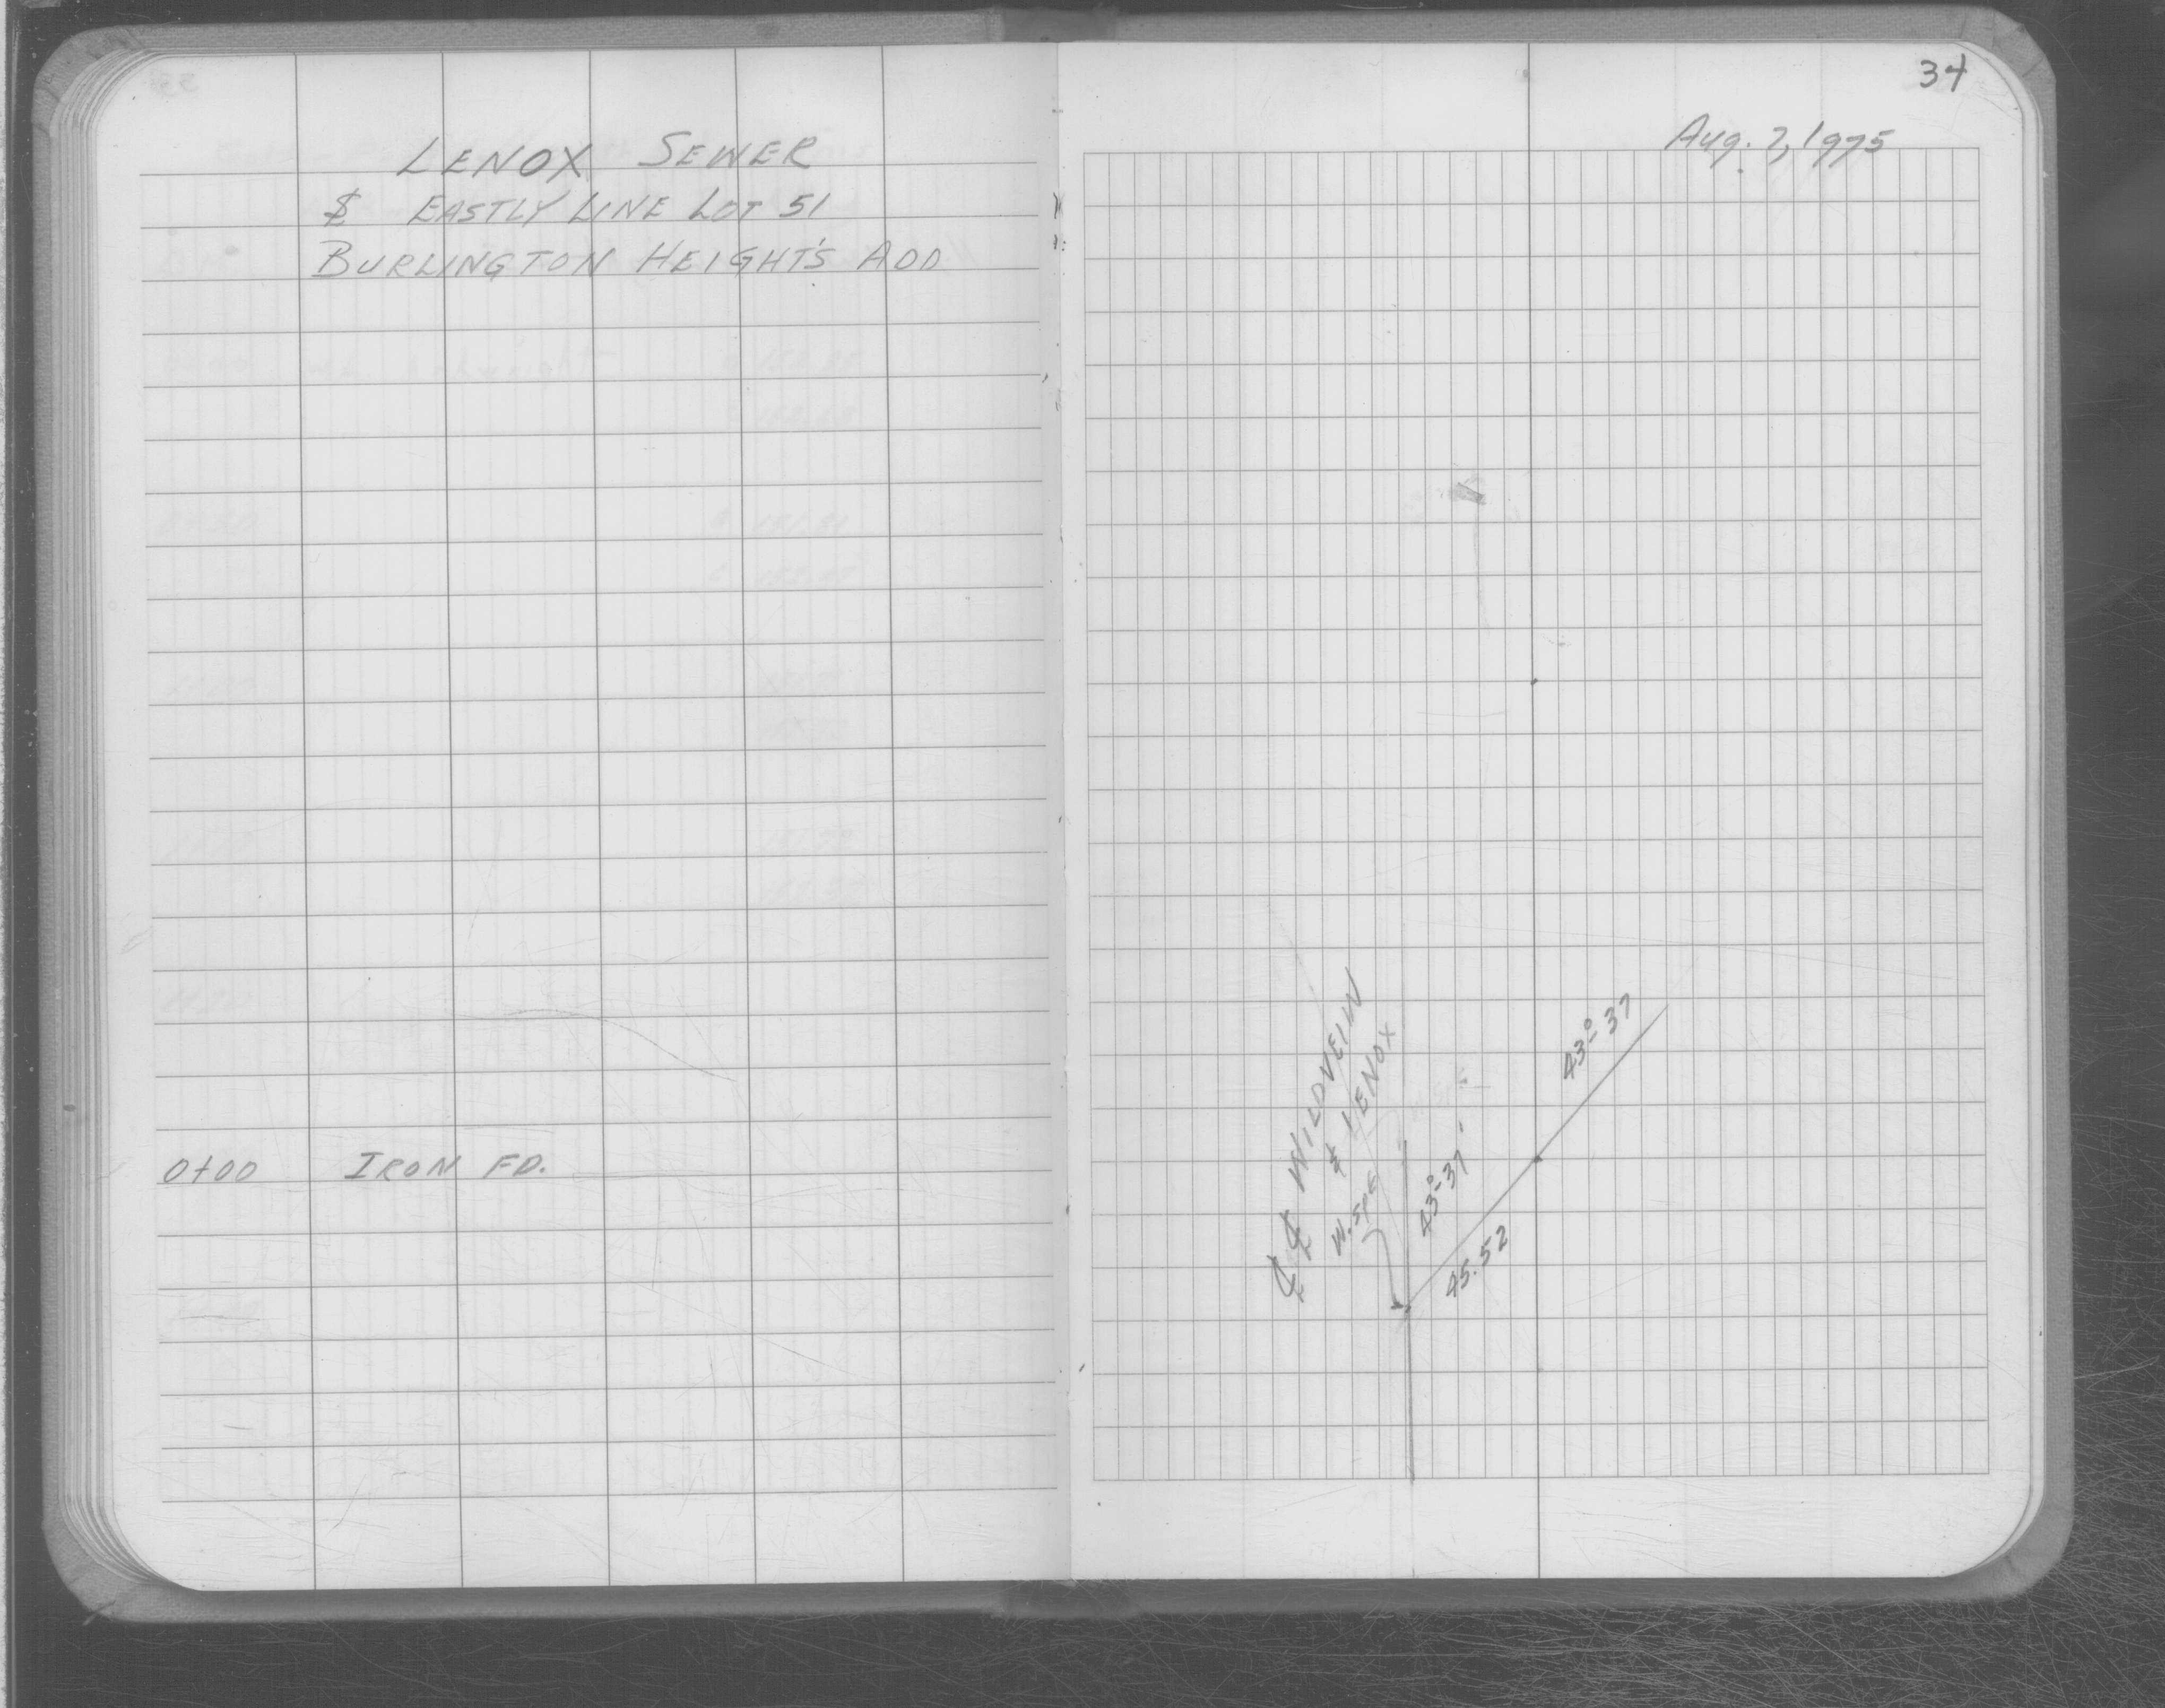 LENOX SEWER
& EASTLY LINE LOT 51
BURLINGTON HEIGHT'S ADD
0+00 IRON FD.
34
Aug. 7, 1975
WILDVEIW
& LENOX
W. SPE
43°-37'
45.52
43°-37